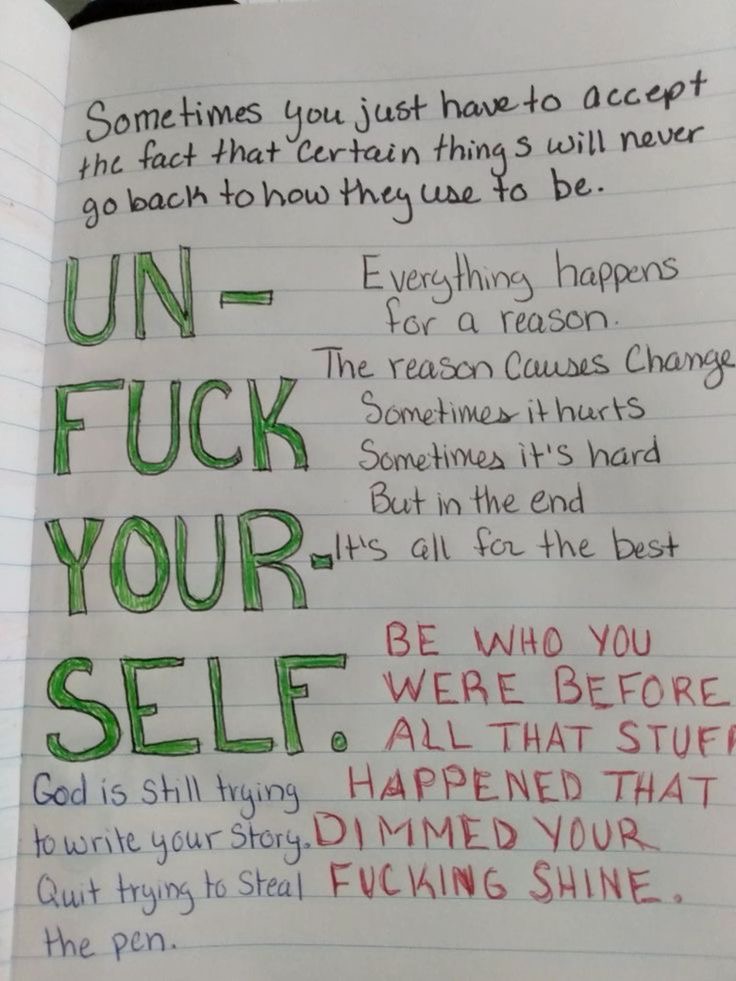 Sometimes you just have to accept
the fact that certain things will never
go back to how they use to be.
UN-
FUCK
YOUR-
SELF.
Everything happens
for a reason.
The reason causes Change
Sometimes it hurts
Sometimes it's hard
But in the end
It's all for the best
BE WHO YOU
WERE BEFORE
ALL THAT STUFF
HAPPENED THAT
DIMMED YOUR
FUCKING SHINE.
God is still trying
to write your story.
Quit trying to steal
the pen.